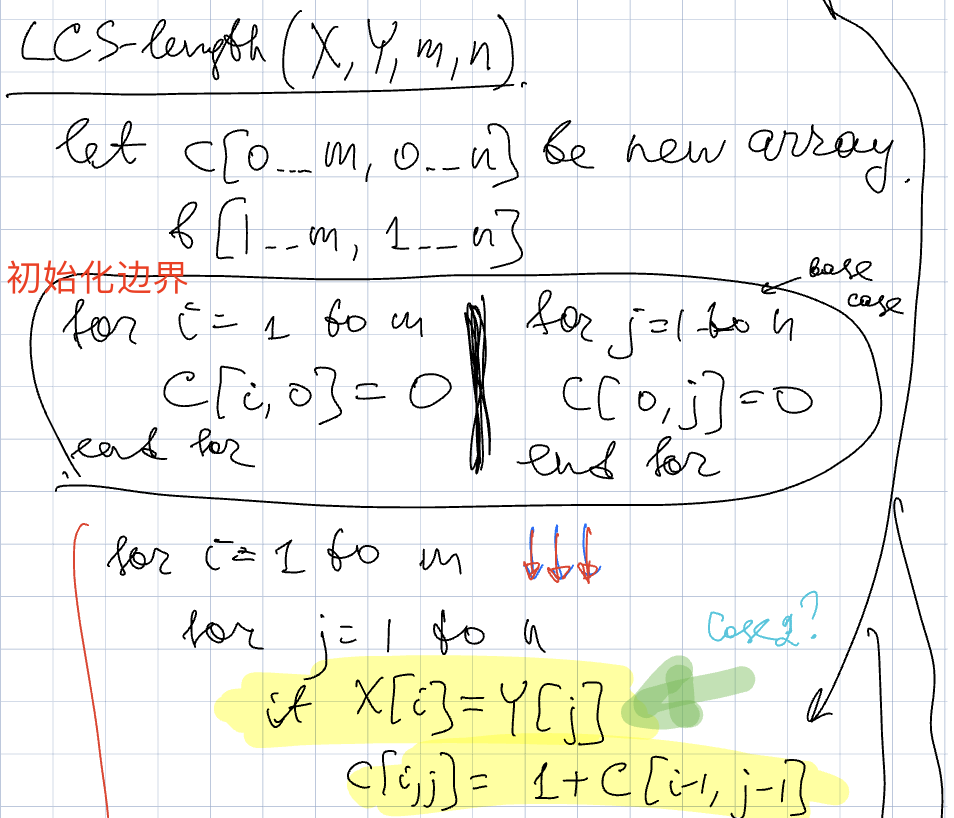 LCS-length (X, Y, m, n).
let c[0...m, 0...n] be new array.
b[1...m, 1...n]
初始化边界
base case
for i = 1 to m
C[i,0] = 0
end for
for j = 1 to n
C[0,j] = 0
end for
for i = 1 to m
for j = 1 to n
Case 2?
if X[i] = Y[j]
C[i,j] = 1 + C[i-1, j-1]